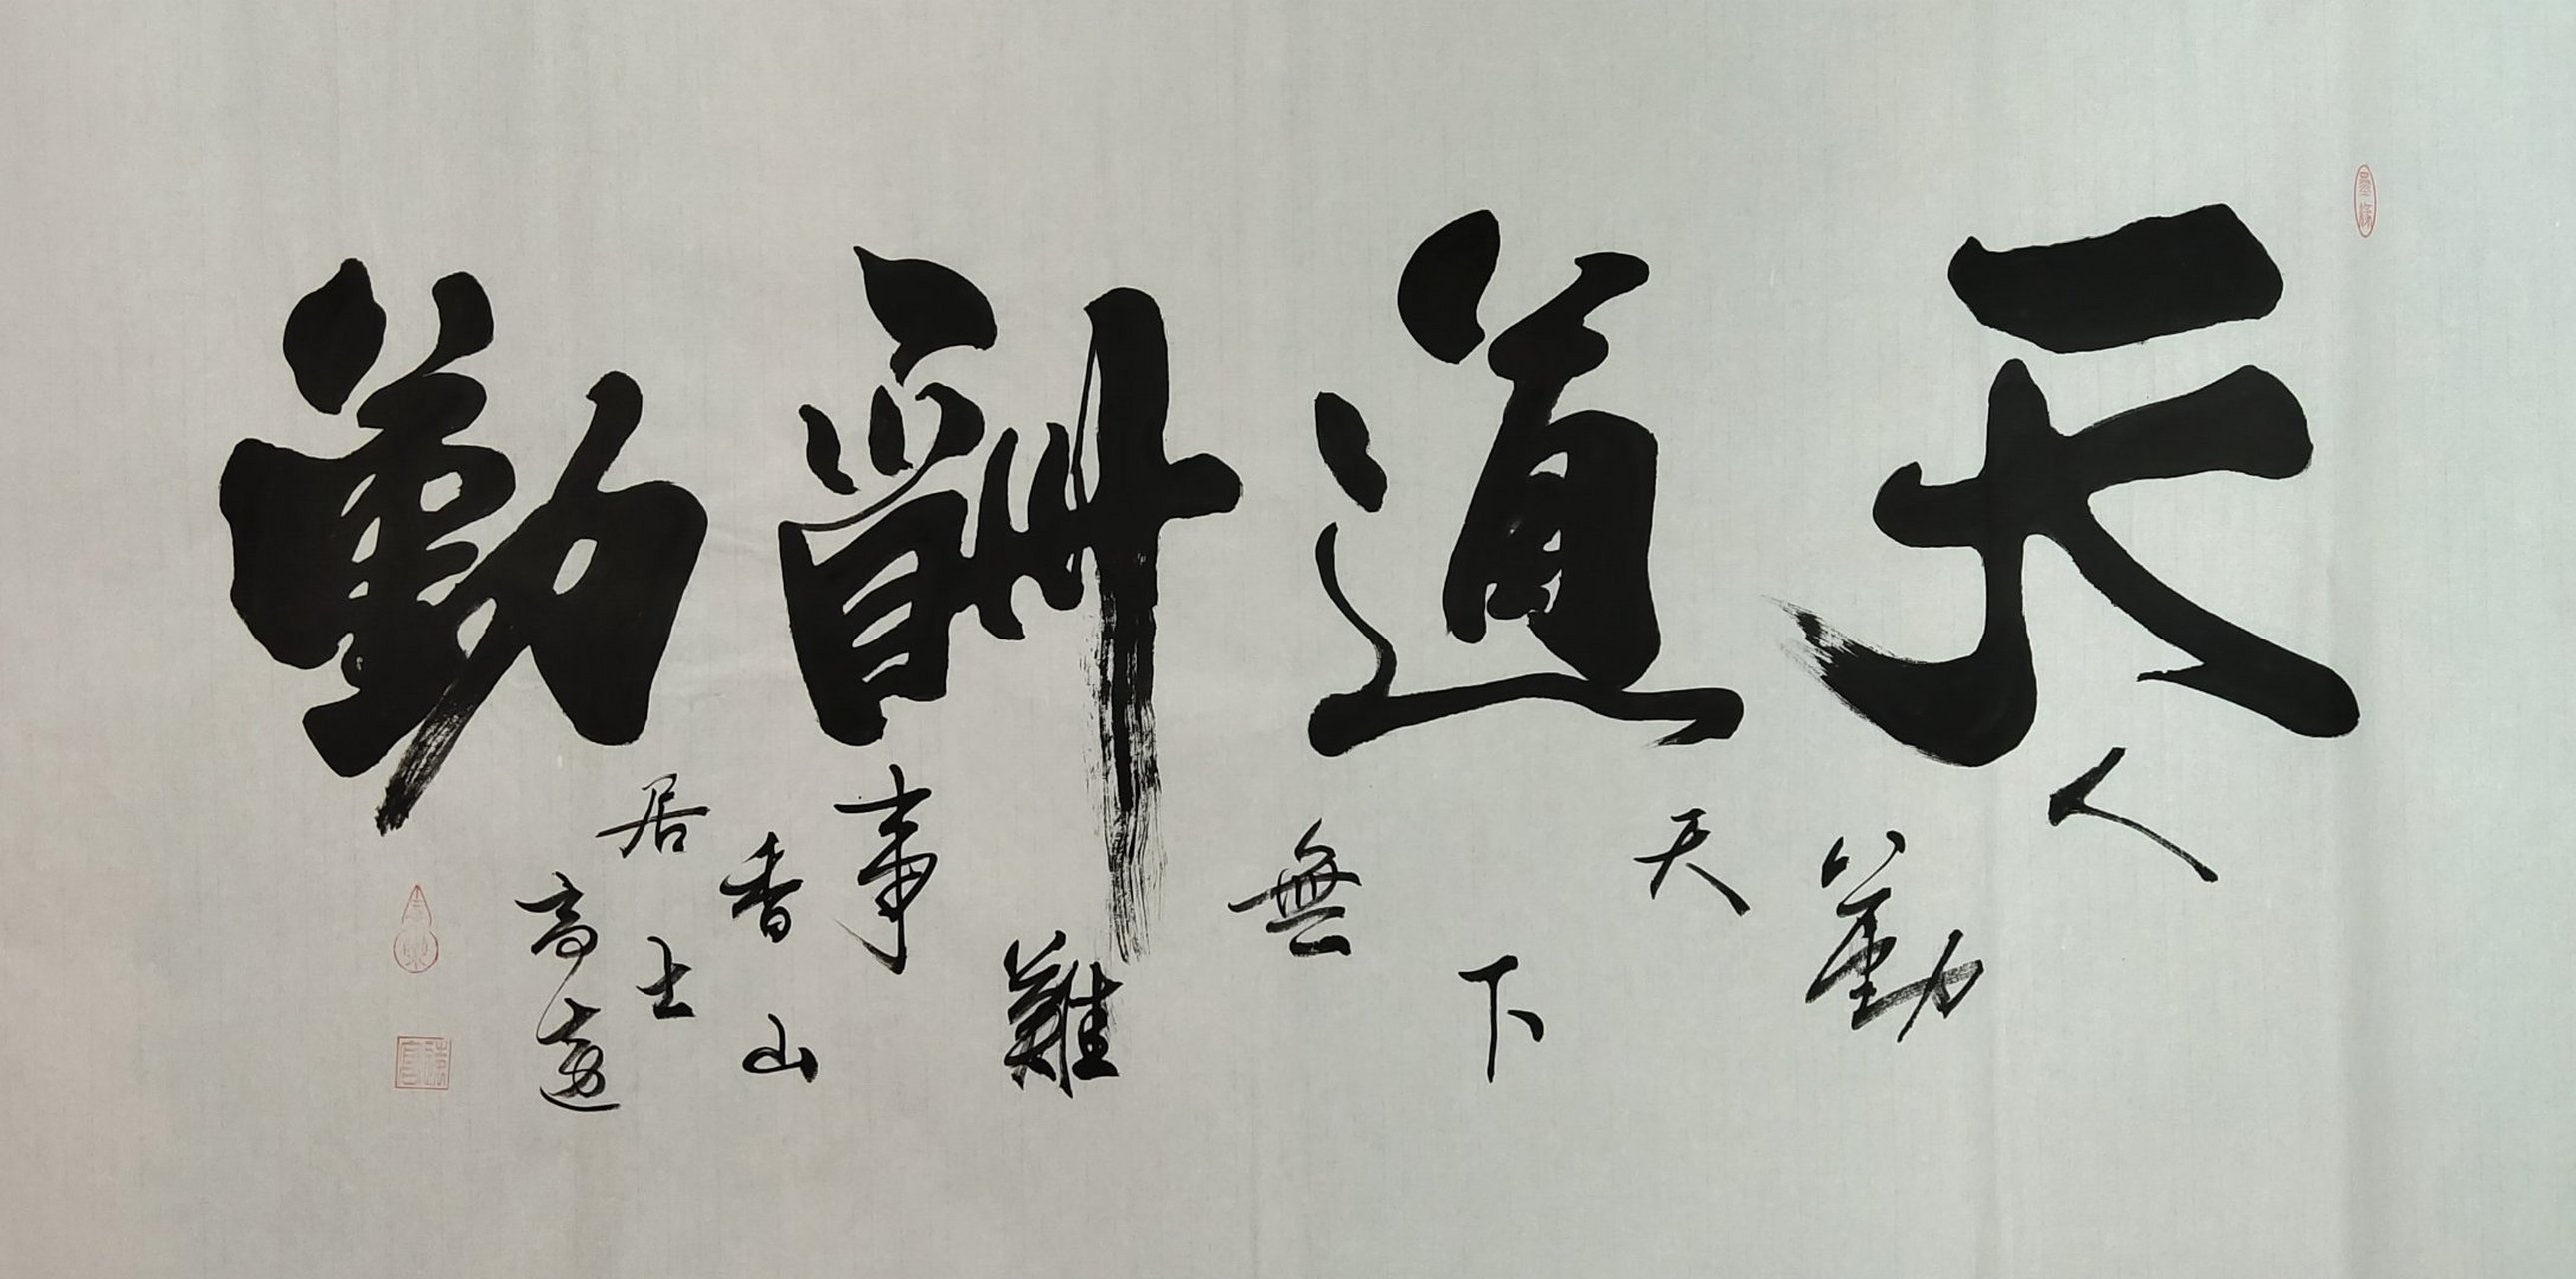 天道酬勤
人勤天下無難事
香山居士高遠